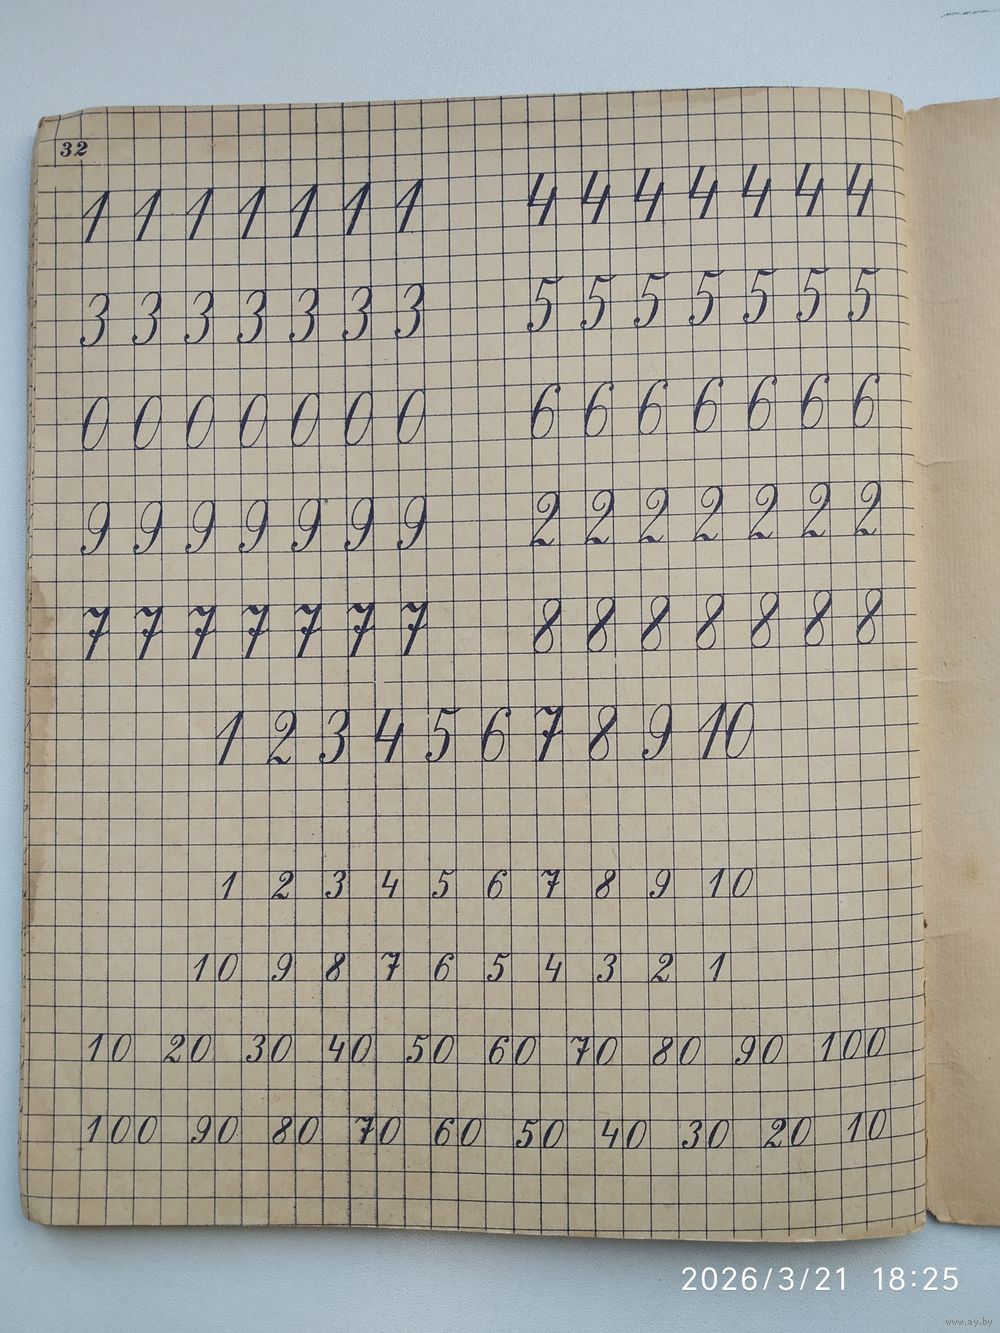 32
1 1 1 1 1 1 1 4 4 4 4 4 4 4
3 3 3 3 3 3 3 5 5 5 5 5 5 5
0 0 0 0 0 0 0 6 6 6 6 6 6 6
9 9 9 9 9 9 9 2 2 2 2 2 2 2
7 7 7 7 7 7 7 8 8 8 8 8 8 8
1 2 3 4 5 6 7 8 9 10
1 2 3 4 5 6 7 8 9 10
10 9 8 7 6 5 4 3 2 1
10 20 30 40 50 60 70 80 90 100
100 90 80 70 60 50 40 30 20 10
2026/3/21 18:25
www.ay.by